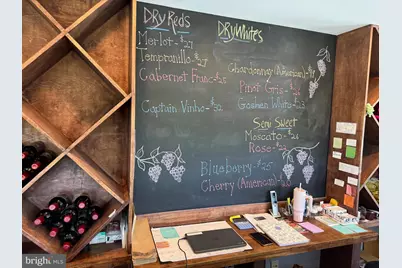 Dry Reds
Merlot - $27
Tempranillo - $
Cabernet Franc $25
Captain Vinho - $32
Dry Whites
Chardonnay (American) $
Pinot Gris - $
Goshen White $23
Semi Sweet
Moscato - $
Rose -
Blueberry - $25
Cherry (American)
bright